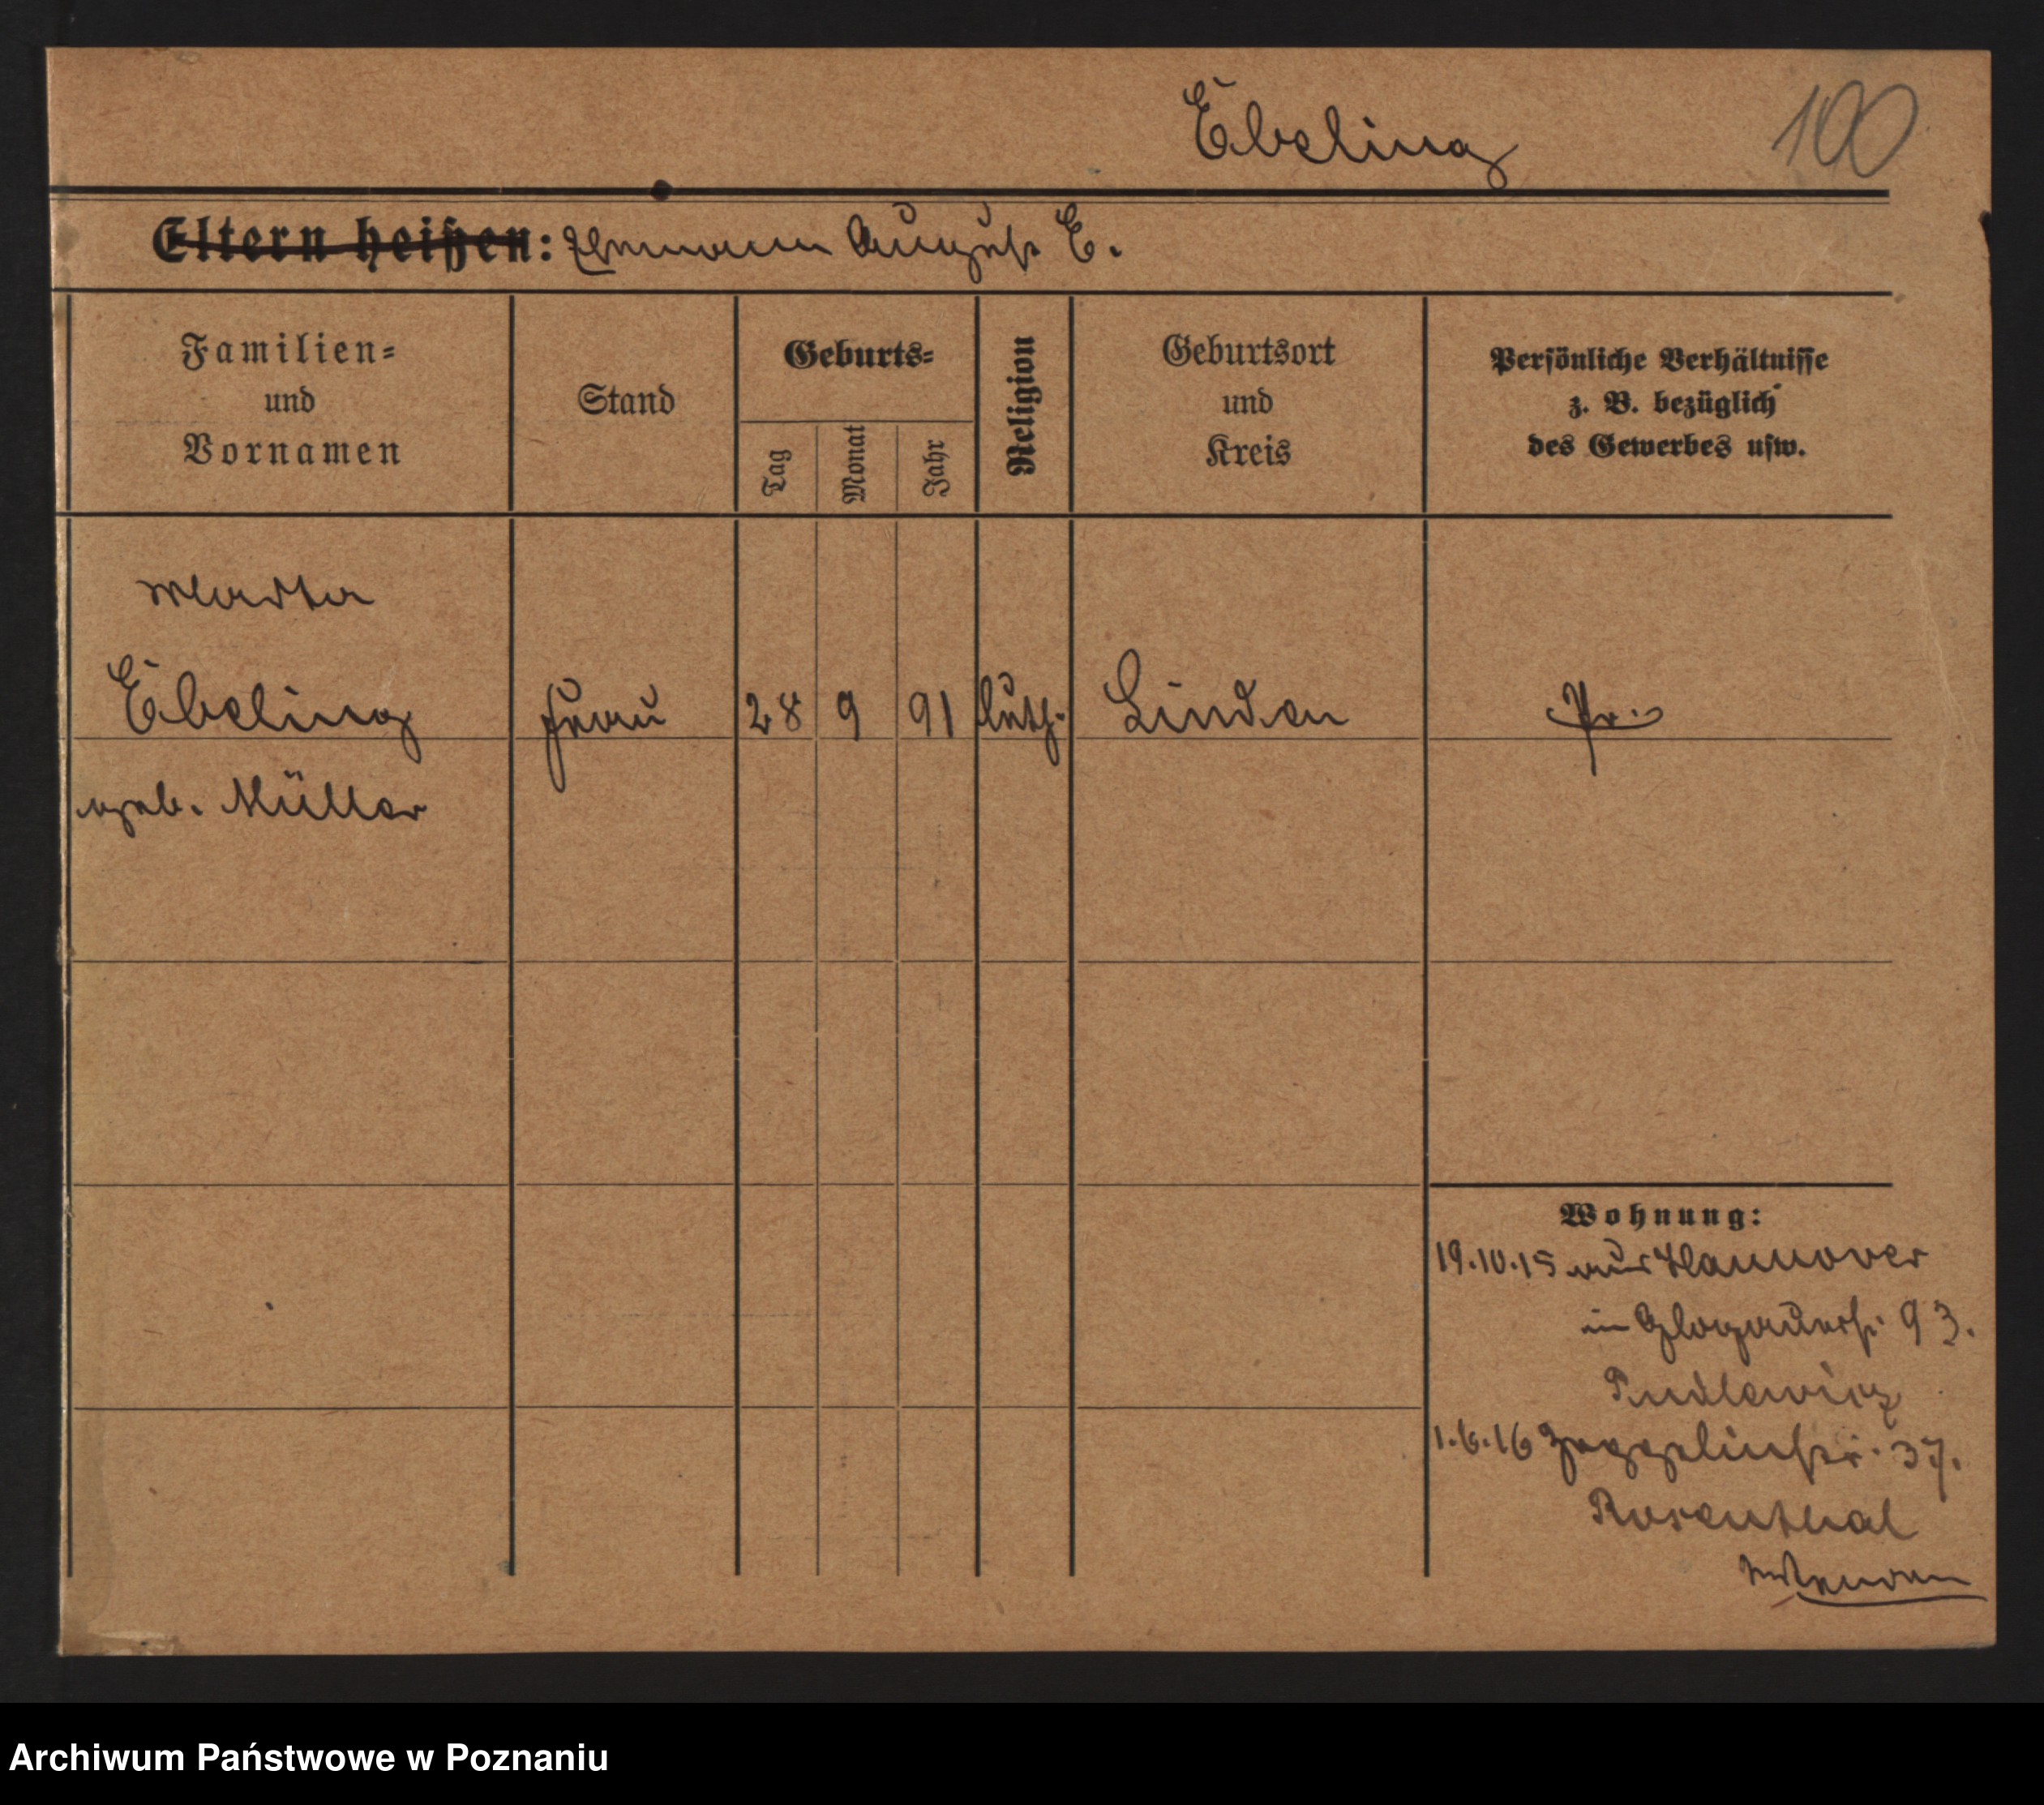 Ebeling 100
Eltern heißen: Ehemann August E.
Familien-
und
Vornamen
Stand
Geburts-
Tag Monat Jahr
Religion
Geburtsort
und
Kreis
Persönliche Verhältnisse
z. B. bezüglich
des Gewerbes usw.
Martha
Ebeling Frau 28 9 91 luth. Linden Pr.
geb. Müller
Wohnung:
19.10.15 aus Hannover
in Glogauerstr 93.
1.6.16 Zeppelinstr. 37.
Rosenthal
Archiwum Państwowe w Poznaniu